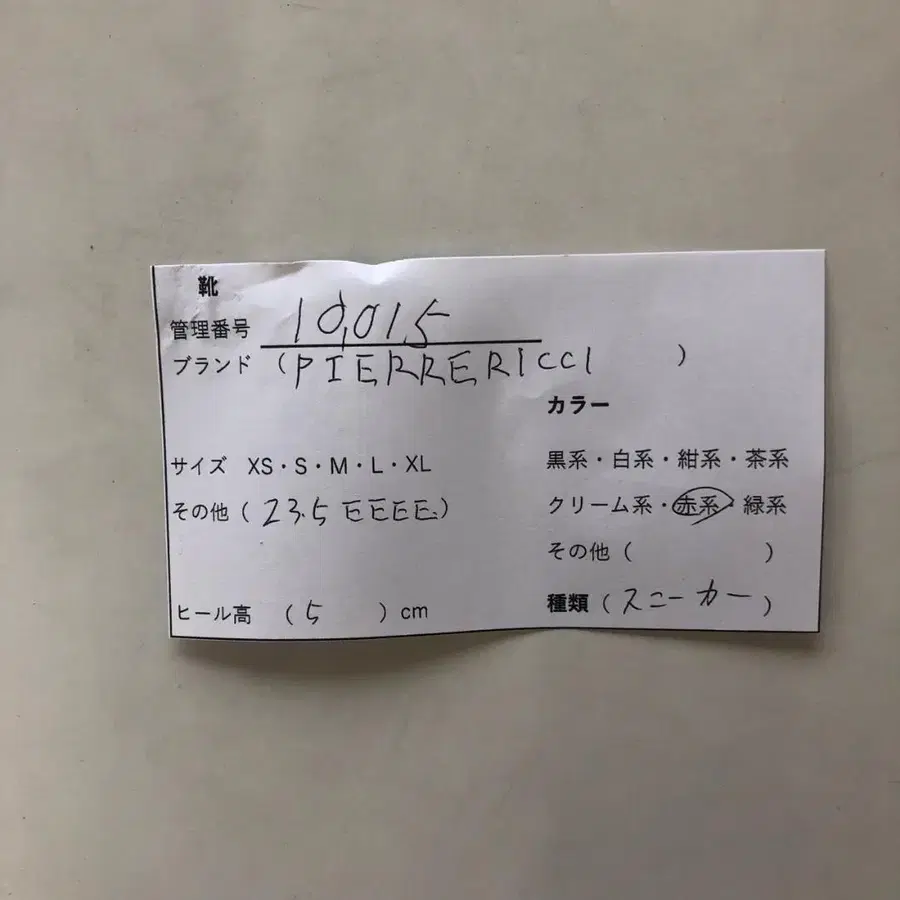 靴
管理番号 10,015
ブランド (PIERRERICCI)
カラー
サイズ XS・S・M・L・XL
黒系・白系・紺系・茶系
その他 (23.5 EEEE)
クリーム系・赤系・緑系
その他 ( )
ヒール高 (5 ) cm
種類 (スニーカー)